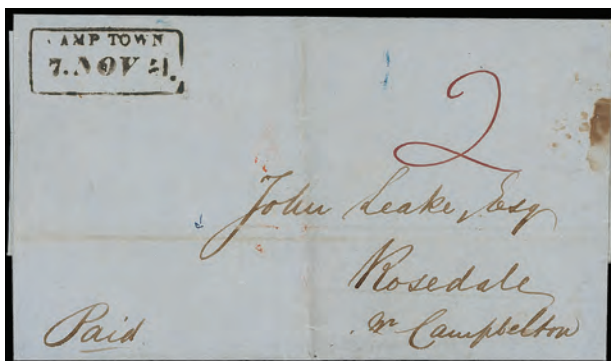 AMP TOWN
7. NOV
2
John Leake, Esq
Rosedale
nr Campbelton
Paid